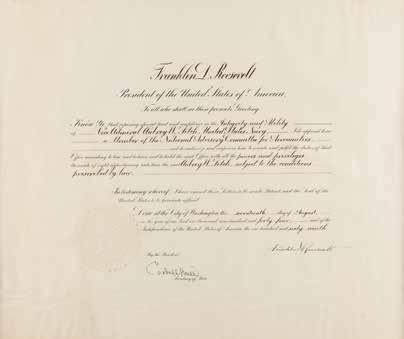 Franklin D. Roosevelt
President of the United States of America.
To all who shall see these presents Greeting:
Know Ye, that reposing special trust and confidence in the Integrity and Ability
of Vice Admiral Aubrey W. Fitch, United States Navy, I do appoint him
a Member of the National Advisory Committee for Aeronautics,
and do authorize and empower him to execute and fulfil the duties of that
Office according to law and to have and to hold the said Office with all the powers and privileges
thereunto of right appertaining unto him the said Aubrey W. Fitch, subject to the conditions
prescribed by law.
In testimony whereof, I have caused these Letters to be made Patent and the Seal of the
United States to be hereunto affixed.
Done at the City of Washington this seventeenth day of August
in the year of our Lord one thousand nine hundred and forty four and of the
Independence of the United States of America the one hundred and sixty ninth.
Franklin D Roosevelt
By the President:
Cordell Hull
Secretary of State